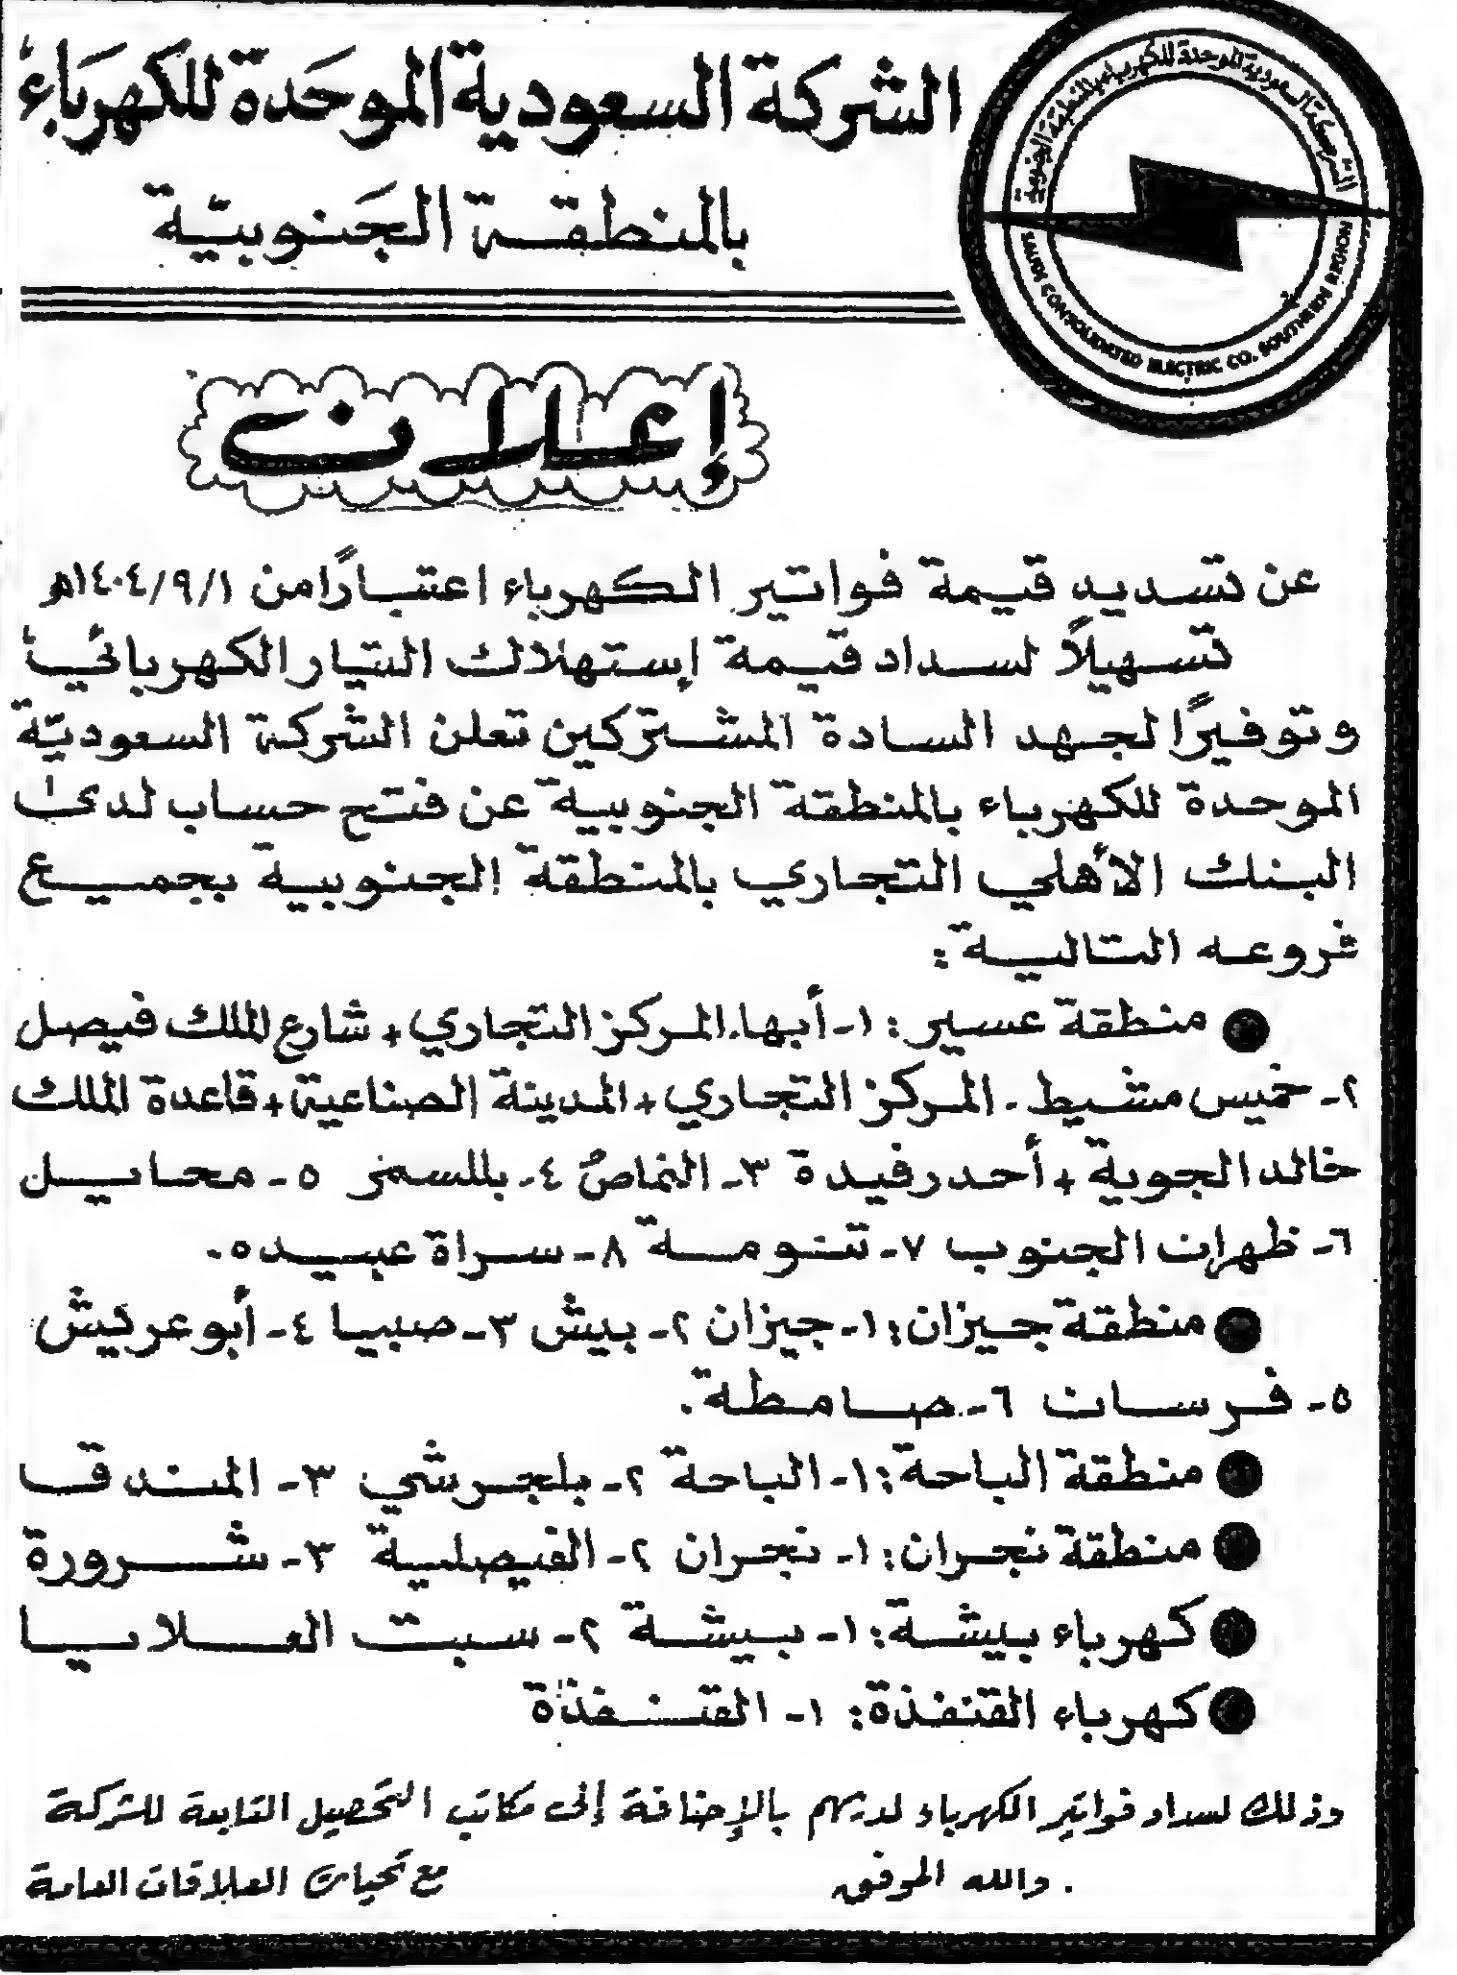 الشركة السعودية الموحدة للكهرباء
بالمنطقة الجنوبية
الشركة السعودية الموحدة للكهرباء بالمنطقة الجنوبية
SAUDI CONSOLIDATED ELECTRIC CO. SOUTHERN REGION
إعلان
عن تسديد قيمة فواتير الكهرباء اعتبارًا من ١٤٠٤/٩/١هـ
تسهيلاً لسداد قيمة إستهلاك التيار الكهربائي
وتوفيرًا لجهد السادة المشتركين تعلن الشركة السعودية
الموحدة للكهرباء بالمنطقة الجنوبية عن فتح حساب لدى
البنك الأهلي التجاري بالمنطقة الجنوبية بجميع
فروعه التالية :
● منطقة عسير : ١- أبها. المركز التجاري + شارع الملك فيصل
٢- خميس مشيط - المركز التجاري + المدينة الصناعية + قاعدة الملك
خالد الجوية + أحد رفيدة ٣- النماص ٤- بللسمر ٥- محايل
٦- ظهران الجنوب ٧- تنومة ٨- سراة عبيده .
● منطقة جيزان : ١- جيزان ٢- بيش ٣- صبيا ٤- أبو عريش
٥- فرسان ٦- صامطة .
● منطقة الباحة : ١- الباحة ٢- بلجرشي ٣- المندق
● منطقة نجران : ١- نجران ٢- الفيصلية ٣- شرورة
● كهرباء بيشة : ١- بيشة ٢- سبت العلايا
● كهرباء القنفذة : ١- القنفذة
وذلك لسداد فواتير الكهرباء لديهم بالإضافة إلى مكاتب التحصيل التابعة للشركة
. والله الموفق
مع تحيات العلاقات العامة